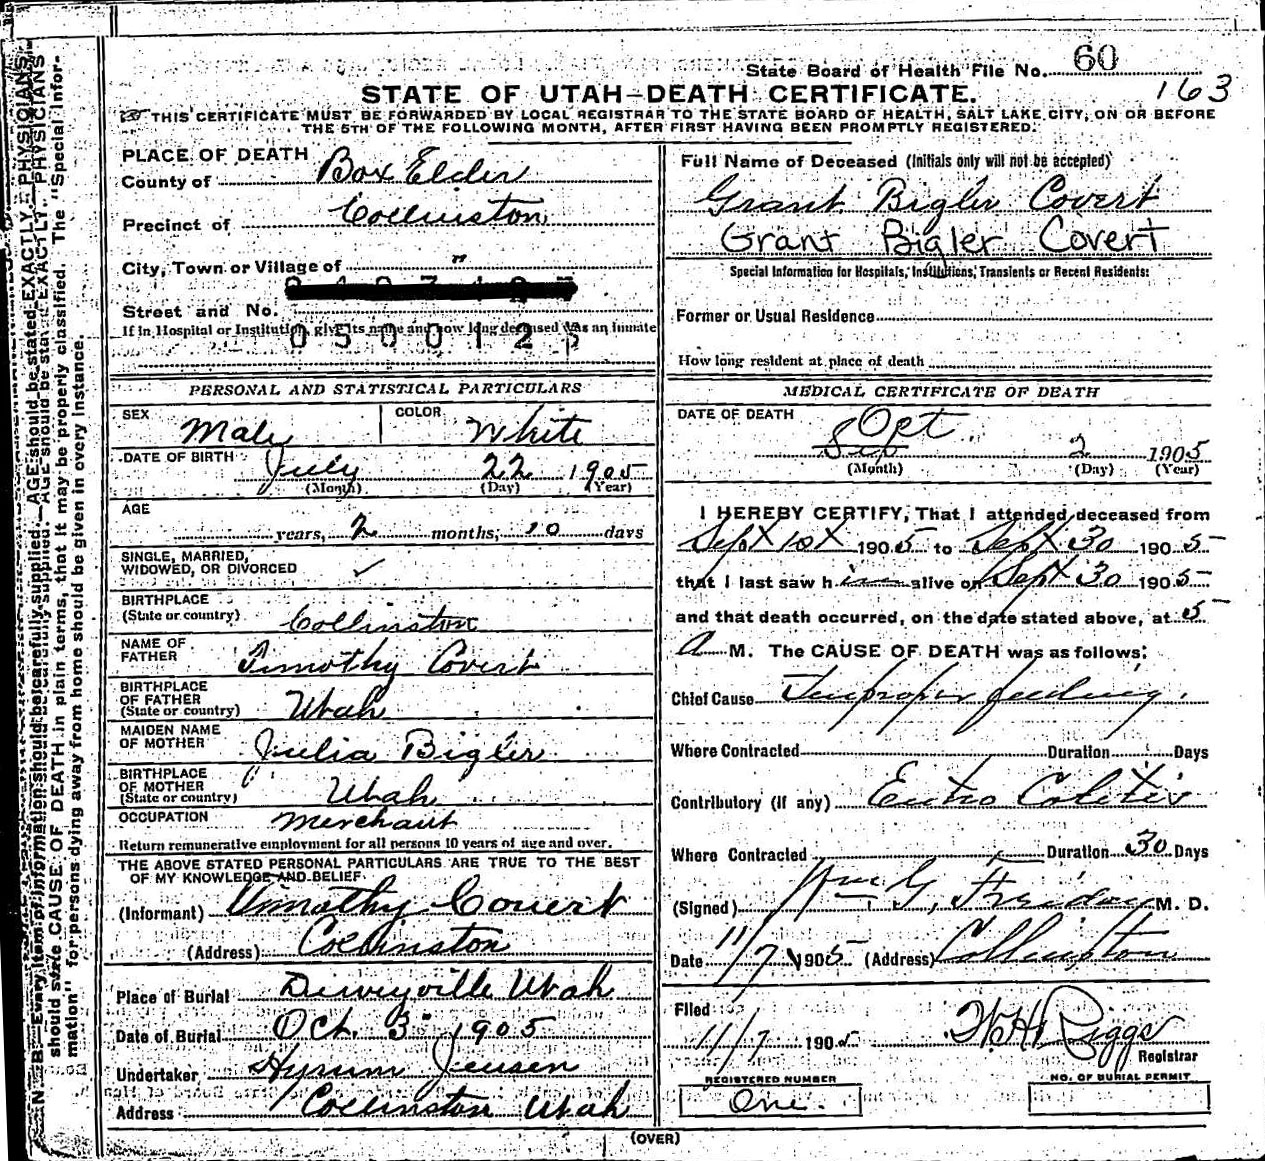 State Board of Health File No. 60
163
STATE OF UTAH–DEATH CERTIFICATE.
THIS CERTIFICATE MUST BE FORWARDED BY LOCAL REGISTRAR TO THE STATE BOARD OF HEALTH, SALT LAKE CITY, ON OR BEFORE
THE 5TH OF THE FOLLOWING MONTH, AFTER FIRST HAVING BEEN PROMPTLY REGISTERED.
PLACE OF DEATH
County of Box Elder
Precinct of Collinston
City, Town or Village of "
Street and No.
If in Hospital or Institution, give its name and how long deceased was an inmate
0500125
PERSONAL AND STATISTICAL PARTICULARS
SEX Male COLOR White
DATE OF BIRTH July 22 1905
(Month) (Day) (Year)
AGE
years, 2 months, 10 days
SINGLE, MARRIED,
WIDOWED, OR DIVORCED ✓
BIRTHPLACE
(State or country) Collinston
NAME OF
FATHER Timothy Covert
BIRTHPLACE
OF FATHER
(State or country) Utah
MAIDEN NAME
OF MOTHER Julia Bigler
BIRTHPLACE
OF MOTHER
(State or country) Utah
OCCUPATION Merchant
Return remunerative employment for all persons 10 years of age and over.
THE ABOVE STATED PERSONAL PARTICULARS ARE TRUE TO THE BEST
OF MY KNOWLEDGE AND BELIEF
(Informant) Timothy Covert
(Address) Collinston
Place of Burial Deweyville Utah
Date of Burial Oct. 3 1905
Undertaker Hyrum Jensen
Address Collinston Utah
Full Name of Deceased (Initials only will not be accepted)
Grant Bigler Covert
Grant Bigler Covert
Special Information for Hospitals, Institutions, Transients or Recent Residents:
Former or Usual Residence
How long resident at place of death
MEDICAL CERTIFICATE OF DEATH
DATE OF DEATH Oct
Sep 2 1905
(Month) (Day) (Year)
I HEREBY CERTIFY, That I attended deceased from
Sept 1st 1905 to Sept 30 1905
that I last saw him alive on Sept 30 1905
and that death occurred, on the date stated above, at 5
A M. The CAUSE OF DEATH was as follows:
Chief Cause Improper feeding.
Where Contracted Duration Days
Contributory (if any) Entro Colitis
Where Contracted Duration 30 Days
(Signed) Wm G. M. D.
Date 11/7 1905 (Address) Collinston
Filed
11/7 1905 W.H. Riggs
Registrar
REGISTERED NUMBER
One.
NO. OF BURIAL PERMIT
(OVER)
N. B.—Every item of information should be carefully supplied. AGE should be stated EXACTLY. PHYSICIANS
should state CAUSE OF DEATH in plain terms, that it may be properly classified. The "Special Infor-
mation" for persons dying away from home should be given in every instance.